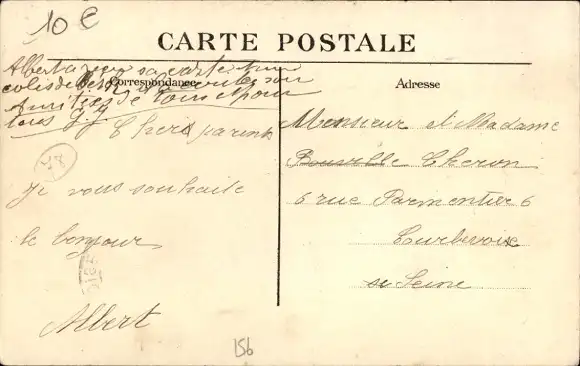 10 €
CARTE POSTALE
Correspondance
Adresse
Albert a reçu sa carte
colis de
Amitiés de tous pour
tous
Chers parents
Je vous souhaite
le bonjour
Albert
Monsieur et Madame
Cheron
6 rue Parmentier 6
Courbevoie
Seine
156